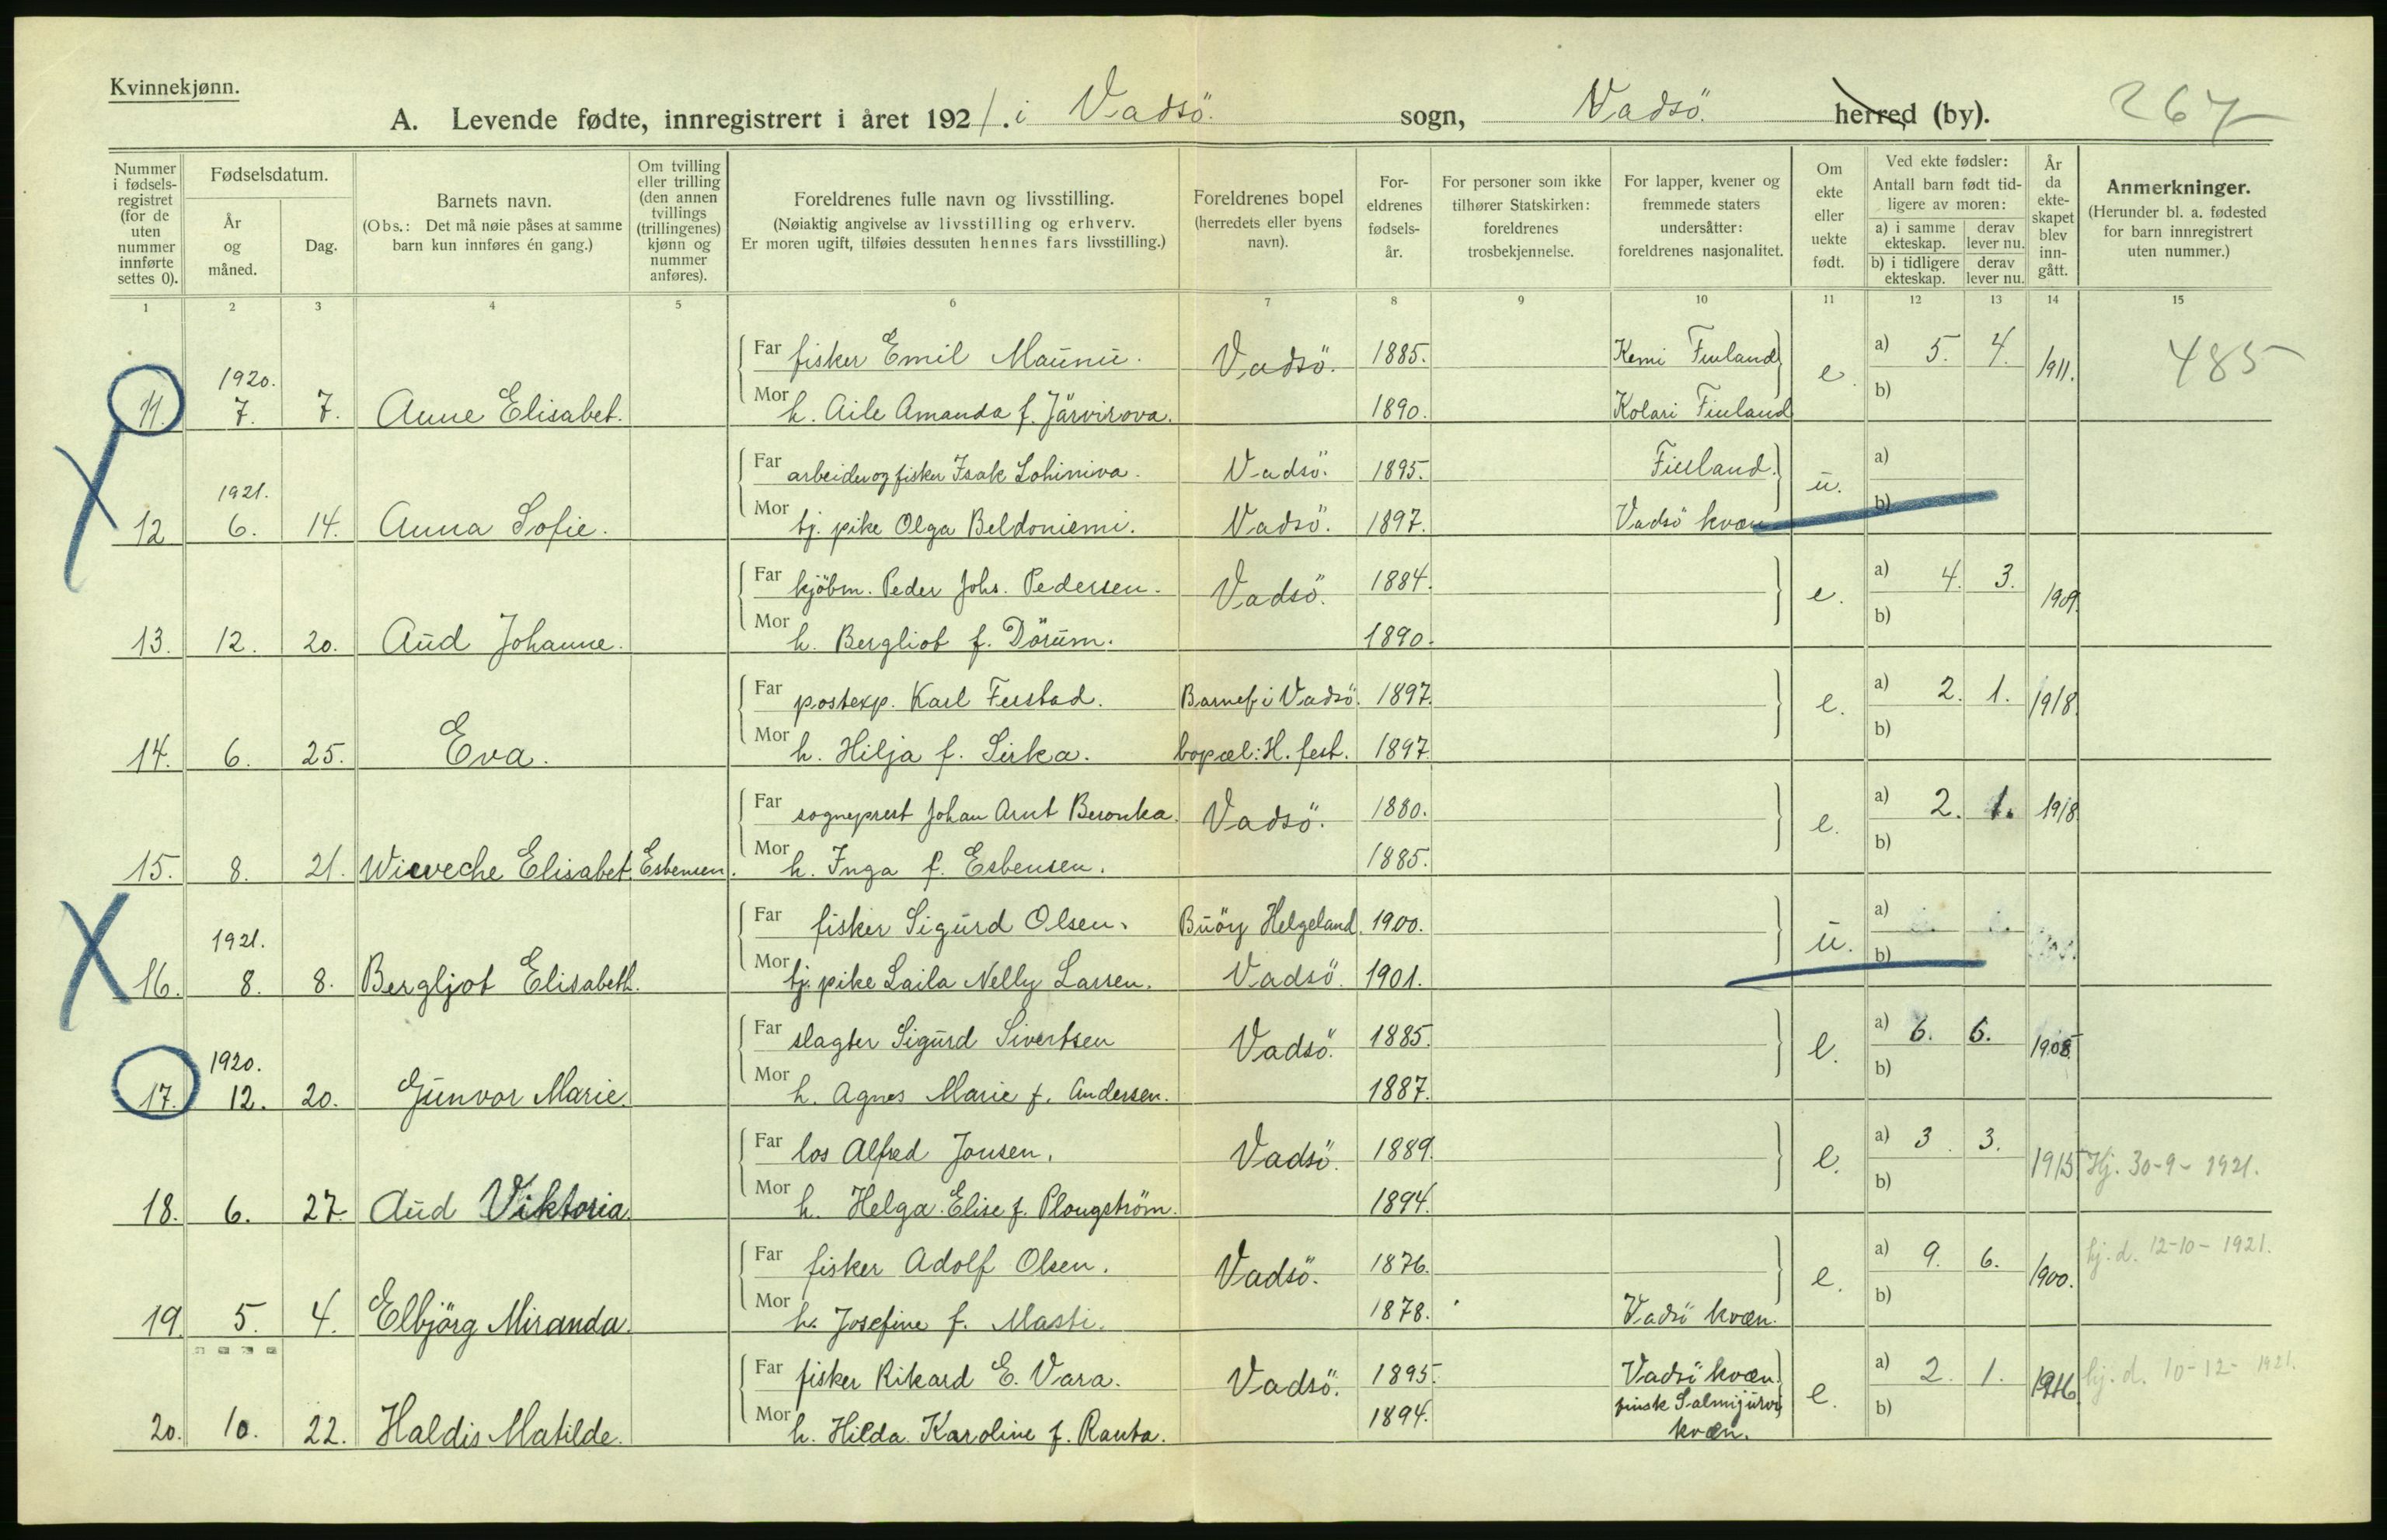 Kvinnekjønn.
A. Levende fødte, innregistrert i året 1921. i Vadsö. sogn, Vadsö. herred (by). 267
Nummer i fødselsregistret (for de uten nummer innførte settes 0).
Fødselsdatum.
År og måned.
Dag.
Barnets navn.
(Obs.: Det må nøie påses at samme barn kun innføres én gang.)
Om tvilling eller trilling (den annen tvillings (trillingenes) kjønn og nummer anføres).
Foreldrenes fulle navn og livsstilling.
(Nøiaktig angivelse av livsstilling og erhverv. Er moren ugift, tilføies dessuten hennes fars livsstilling.)
Foreldrenes bopel (herredets eller byens navn).
Foreldrenes fødselsår.
For personer som ikke tilhører Statskirken: foreldrenes trosbekjennelse.
For lapper, kvener og fremmede staters undersåtter: foreldrenes nasjonalitet.
Om ekte eller uekte født.
Ved ekte fødsler: Antall barn født tidligere av moren:
a) i samme ekteskap. derav lever nu.
b) i tidligere ekteskap. derav lever nu.
År da ekteskapet blev inngått.
Anmerkninger.
(Herunder bl. a. fødested for barn innregistrert uten nummer.)
1 2 3 4 5 6 7 8 9 10 11 12 13 14 15
Far fisker Emil Maunu. Vadsö. 1885. Kemi Finland a) 5. 4. 485
11. 1920. 7. 7. Anne Elisabet. Mor h. Aile Amanda f. Järvirova. 1890. Kolari Finland e. b) 1911.
Far arbeider og fisker Isak Lohiniva. Vadsö. 1895. Finland. a)
12 1921. 6. 14. Anna Sofie. Mor tj. pike Olga Beldoniemi. Vadsö. 1897. Vadsö kvæn u. b)
Far kjöbm. Peder Johs. Pedersen. Vadsö. 1884. a) 4. 3.
13. 12. 20. Aud Johanne. Mor h. Bergliot f. Dörum. 1890. e. b) 1909.
Far postexp. Karl Feustad. Barnef i Vadsö. 1897. a) 2. 1.
14. 6. 25. Eva. Mor h. Hilja f. Sirka. bopæl: H. fest. 1897. e. b) 1918.
Far sogneprest Johan Arnt Beronka. Vadsö. 1880. a) 2. 1.
15. 8. 21. Wieveche Elisabet Esbensen. Mor h. Inga f. Esbensen. 1885. e. b) 1918.
Far fisker Sigurd Olsen. Buöy Helgeland. 1900. a)
16. 1921. 8. 8. Bergljot Elisabeth. Mor tj. pike Laila Nelly Larsen. Vadsö. 1901. u. b)
Far slagter Sigurd Sivertsen Vadsö. 1885. a) 6. 6.
17. 1920. 12. 20. Gunvor Marie. Mor h. Agnes Marie f. Andersen. 1887. e. b) 1908.
Far los Alfred Jonsen. Vadsö. 1889. a) 3. 3.
18. 6. 27. Aud Viktoria. Mor h. Helga Elise f. Plougström. 1894. e. b) 1915 Hj. 30-9-1921.
Far fisker Adolf Olsen. Vadsö. 1876. a) 9. 6. hj. d. 12-10-1921.
19. 5. 4. Elbjörg Miranda. Mor h. Josefine f. Masti. 1878. Vadsö kvæn. e. b) 1900.
Far fisker Rikard E. Vara. Vadsö. 1895. Vadsö kvæn. a) 2. 1. hj. d. 10-12-1921.
20. 10. 22. Haldis Matilde. Mor h. Hilda Karoline f. Ranta. 1894. finsk Salmijürvi kvæn. e. b) 1916